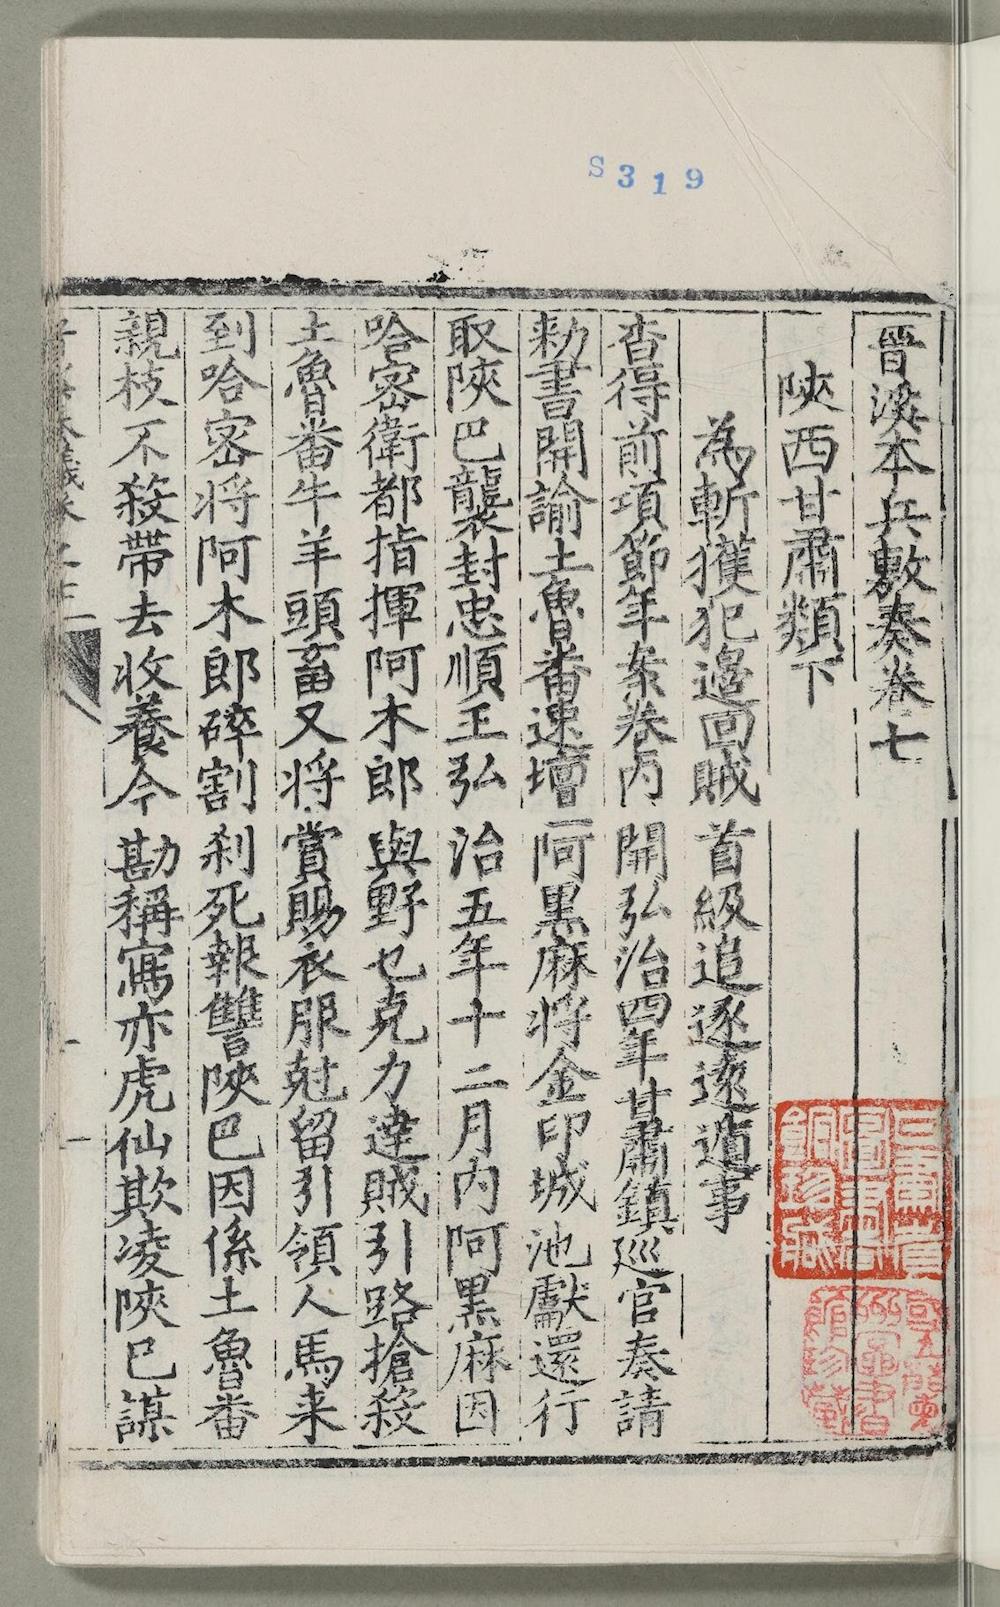 S319
晉溪本兵敷奏卷七
陝西甘肅類下
為斬獲犯邊回賊首級追逐遠遁事
查得前項節年案卷内開弘治四年甘肅鎮巡官奏請
勑書開諭土魯番速壇阿黒麻将金印城池獻還行
取陝巴襲封忠順王弘治五年十二月内阿黒麻因
哈密衛都指揮阿木郎與野乜克力達賊引路搶殺
土魯番牛羊頭畜又将賞賜衣服尅留引領人馬来
到哈密将阿木郎碎割剎死報讐陝巴因係土魯番
親枝不殺帶去收養今勘稱寫亦虎仙欺凌陝巴謀